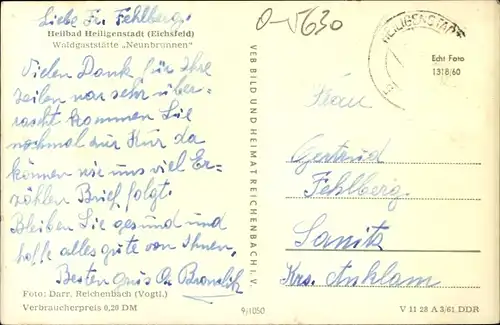 Liebe Fr. Fehlberg.
Heilbad Heiligenstadt (Eichsfeld)
Waldgaststätte „Neunbrunnen“
Vielen Dank für Ihre
Zeilen war sehr über-
rascht kommen Sie
nochmal zur Kur da
können wir uns viel Er-
zählen Brief folgt.
Bleiben Sie gesund und
hoffe alles gute von Ihnen,
Besten Grus
Foto: Darr, Reichenbach (Vogtl.)
Verbraucherpreis 0,20 DM
VEB BILD UND HEIMAT REICHENBACH I. V.
9/1050
5630
HEILIGENSTADT
Echt Foto
1318/60
Frau
Gertrud
Fehlberg.
Krs. Anklam
V 11 28 A 3/61 DDR